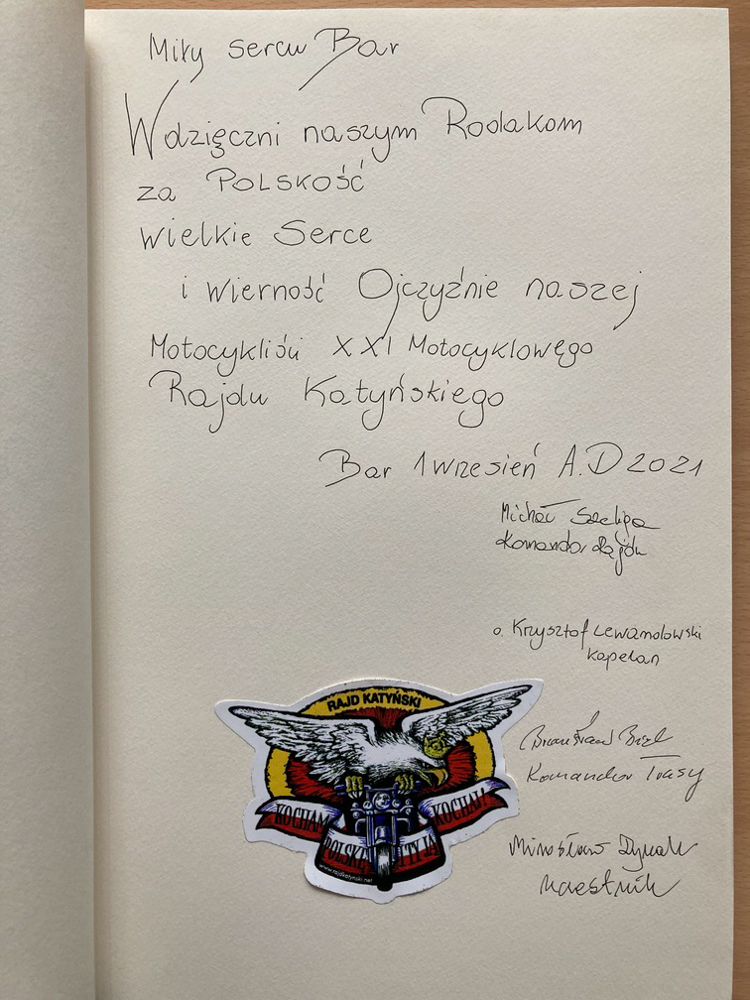 Miły sercu Bar
Wdzięczni naszym Rodakom
za POLSKOŚĆ
wielkie Serce
i wierność Ojczyźnie naszej
Motocykliści XXI Motocyklowego
Rajdu Katyńskiego
Bar 1 wrzesień A.D 2021
Michał Szeliga
Komandor Rajdu
o. Krzysztof Lewandowski
kapelan
RAJD KATYŃSKI
KOCHAM POLSKĘ I TY JĄ KOCHAJ!
www.rajdkatynski.net
Komandor Trasy
Mirosław